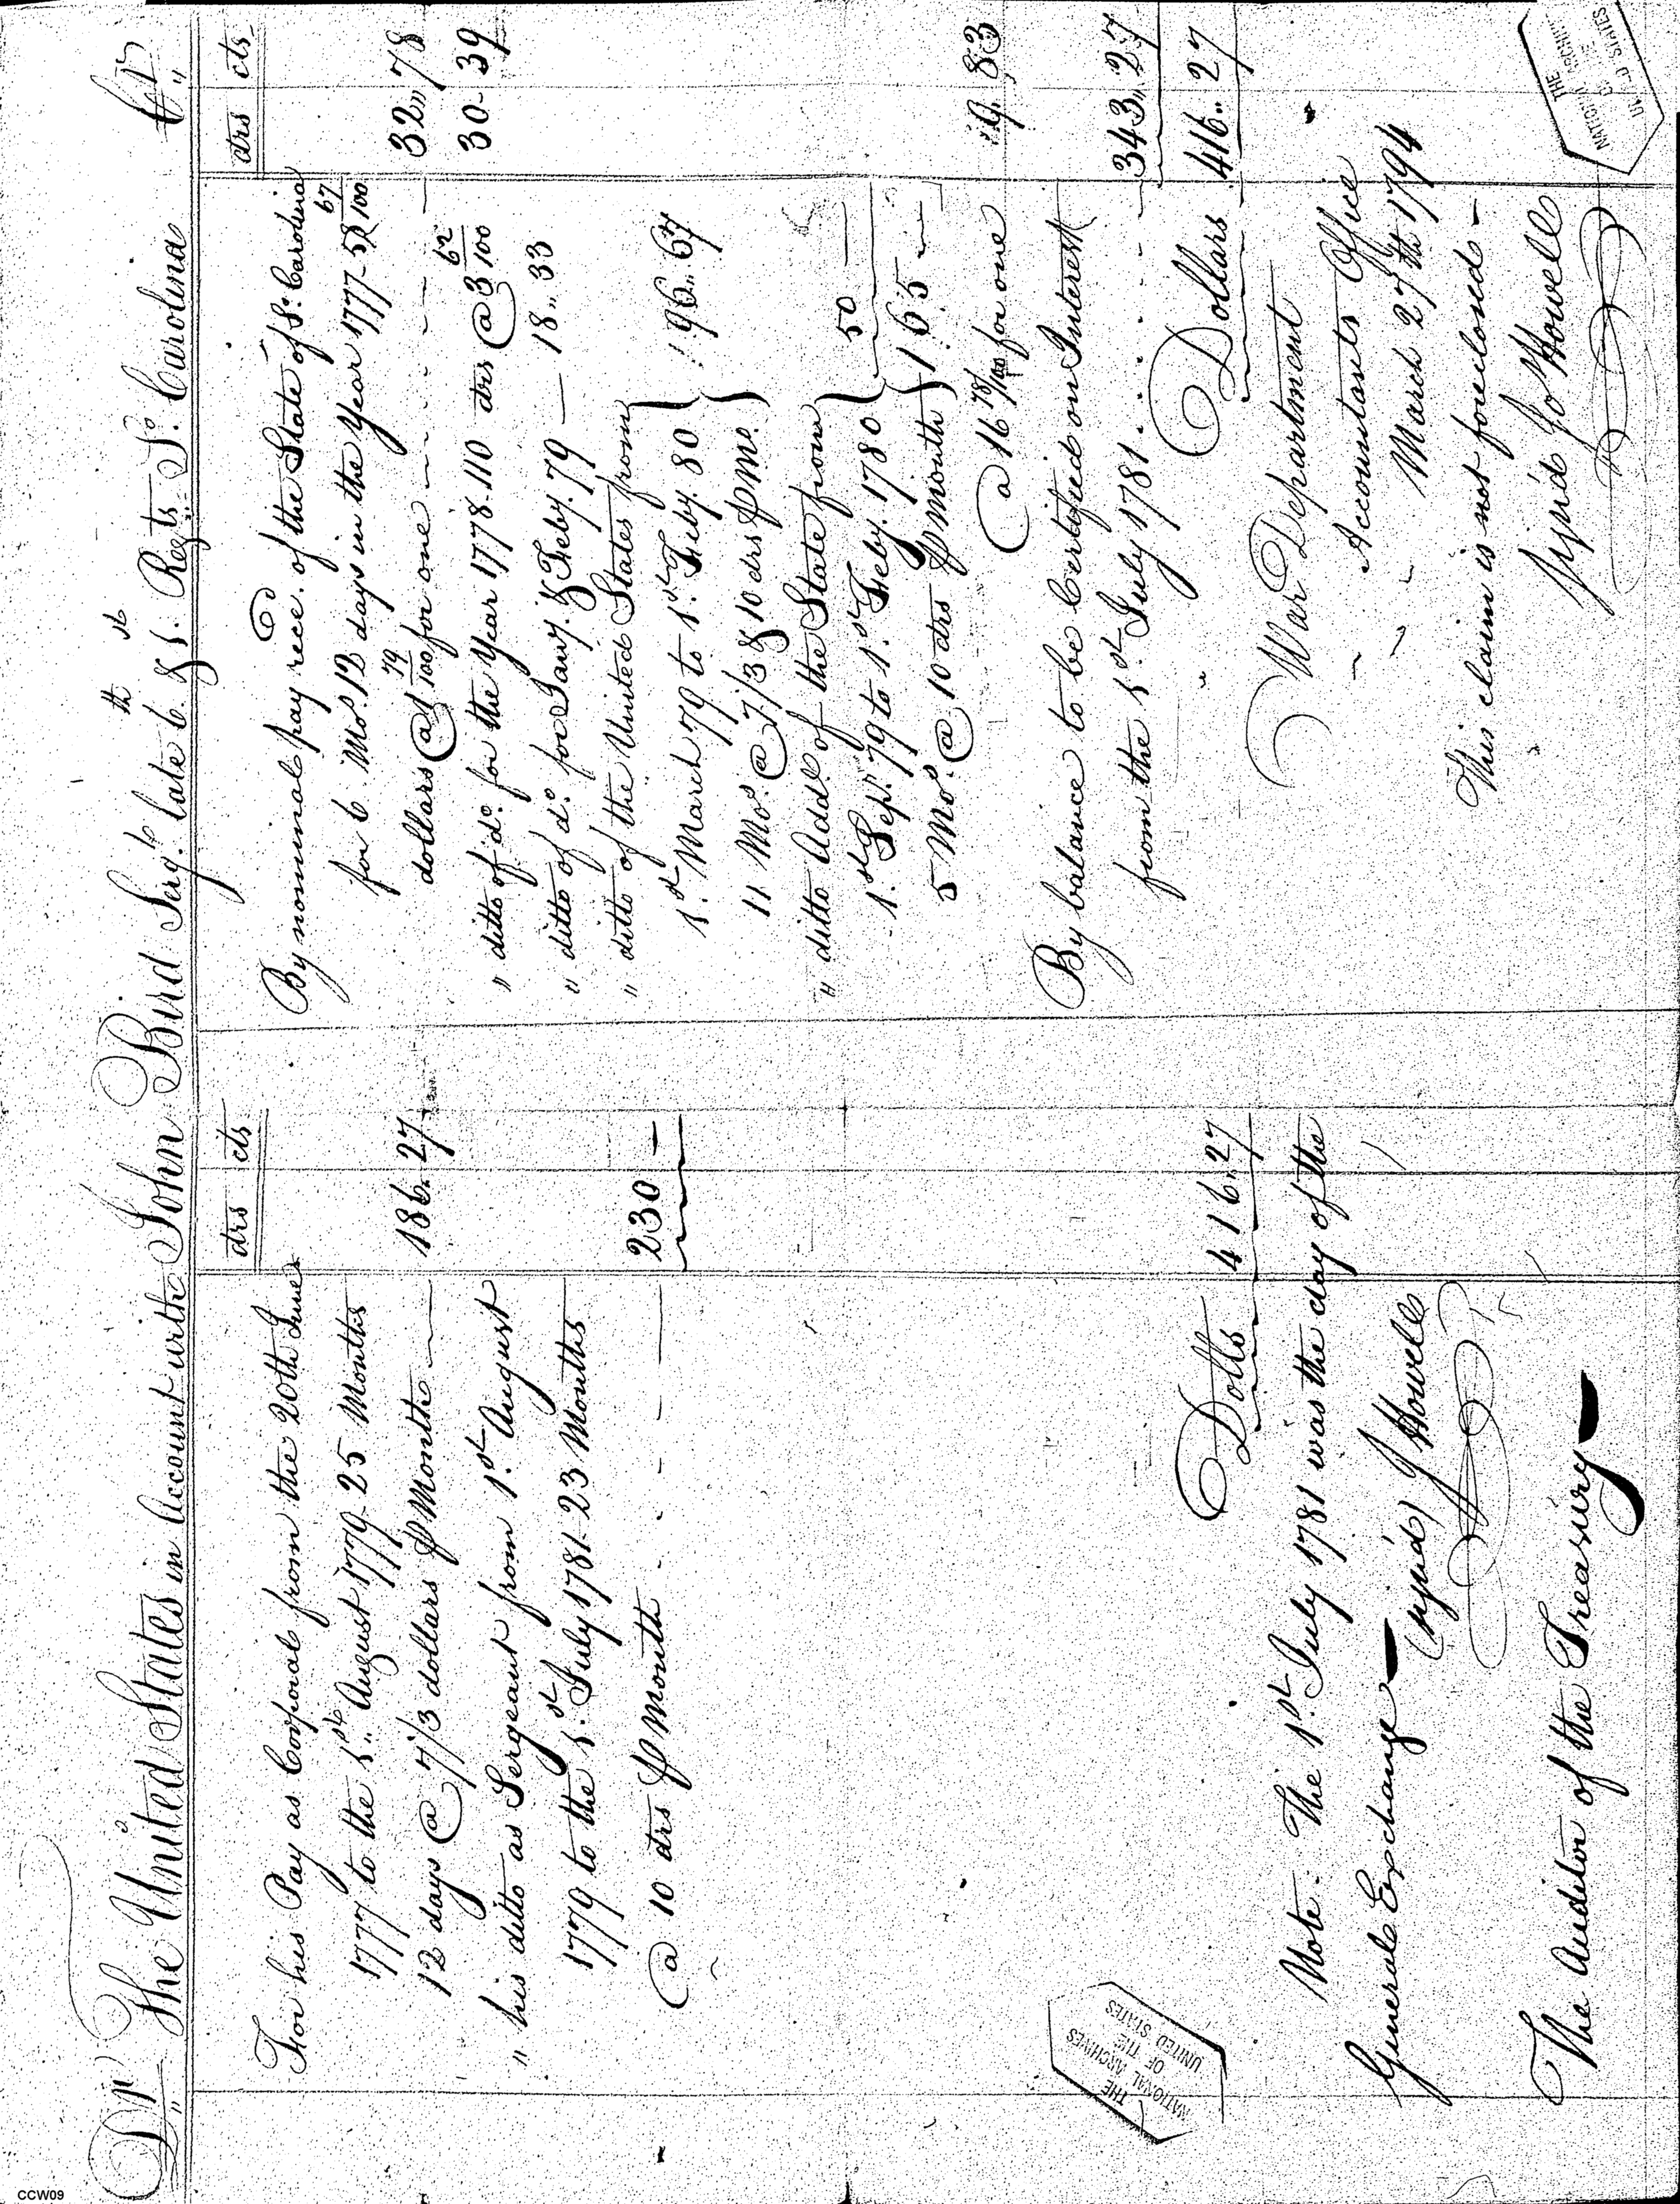 Dr The United States in Account with John Bird Serjt. late 6th & 1st Regts So. Carolina Cr
drs cts
For his Pay as Corporal from the 20th June
1777 to the 1st August 1779 25 Months
12 days @ 7/3 dollars P Month 186.. 27
" his ditto as Sergeant from 1st August
1779 to the 1st July 1781 23 Months
@ 10 drs P Month 230 —
Dolls 416.. 27
Note. The 1st July 1781 was the day of the
General Exchange
sign'd J Howell
The Auditor of the Treasury
drs cts
By nominal pay recd. of the State of So. Carolina
for 6 Mos. 12 days in the Year 1777 58 67/100
dollars @ 1 79/100 for one 32.. 78
" ditto of do. for the Year 1778 110 drs @ 3 62/100 30 - 39
" ditto of do. for Jany. & Feby. 79 — 18.. 33
" ditto of the United States from
1st March 79 to 1st Feby. 80
11 Mos. @ 7/3 & 10 drs P Mo. 96.. 67
" ditto Addl. of the State from
1st Sepr. 79 to 1st Feby. 1780
5 Mos. @ 10 drs P Month 50 —
165 —
@ 16 78/100 for one 9.. 83
By balance to be Certified on Interest
from the 1st July 1781 343.. 27
Dollars 416.. 27
War Department
Accountants Office
March 27th 1794
This claim is not foreclosed —
sign'd Jo Howell
THE
NATIONAL ARCHIVES
OF THE
UNITED STATES
THE
NATIONAL ARCHIVES
OF THE
UNITED STATES
CCW09